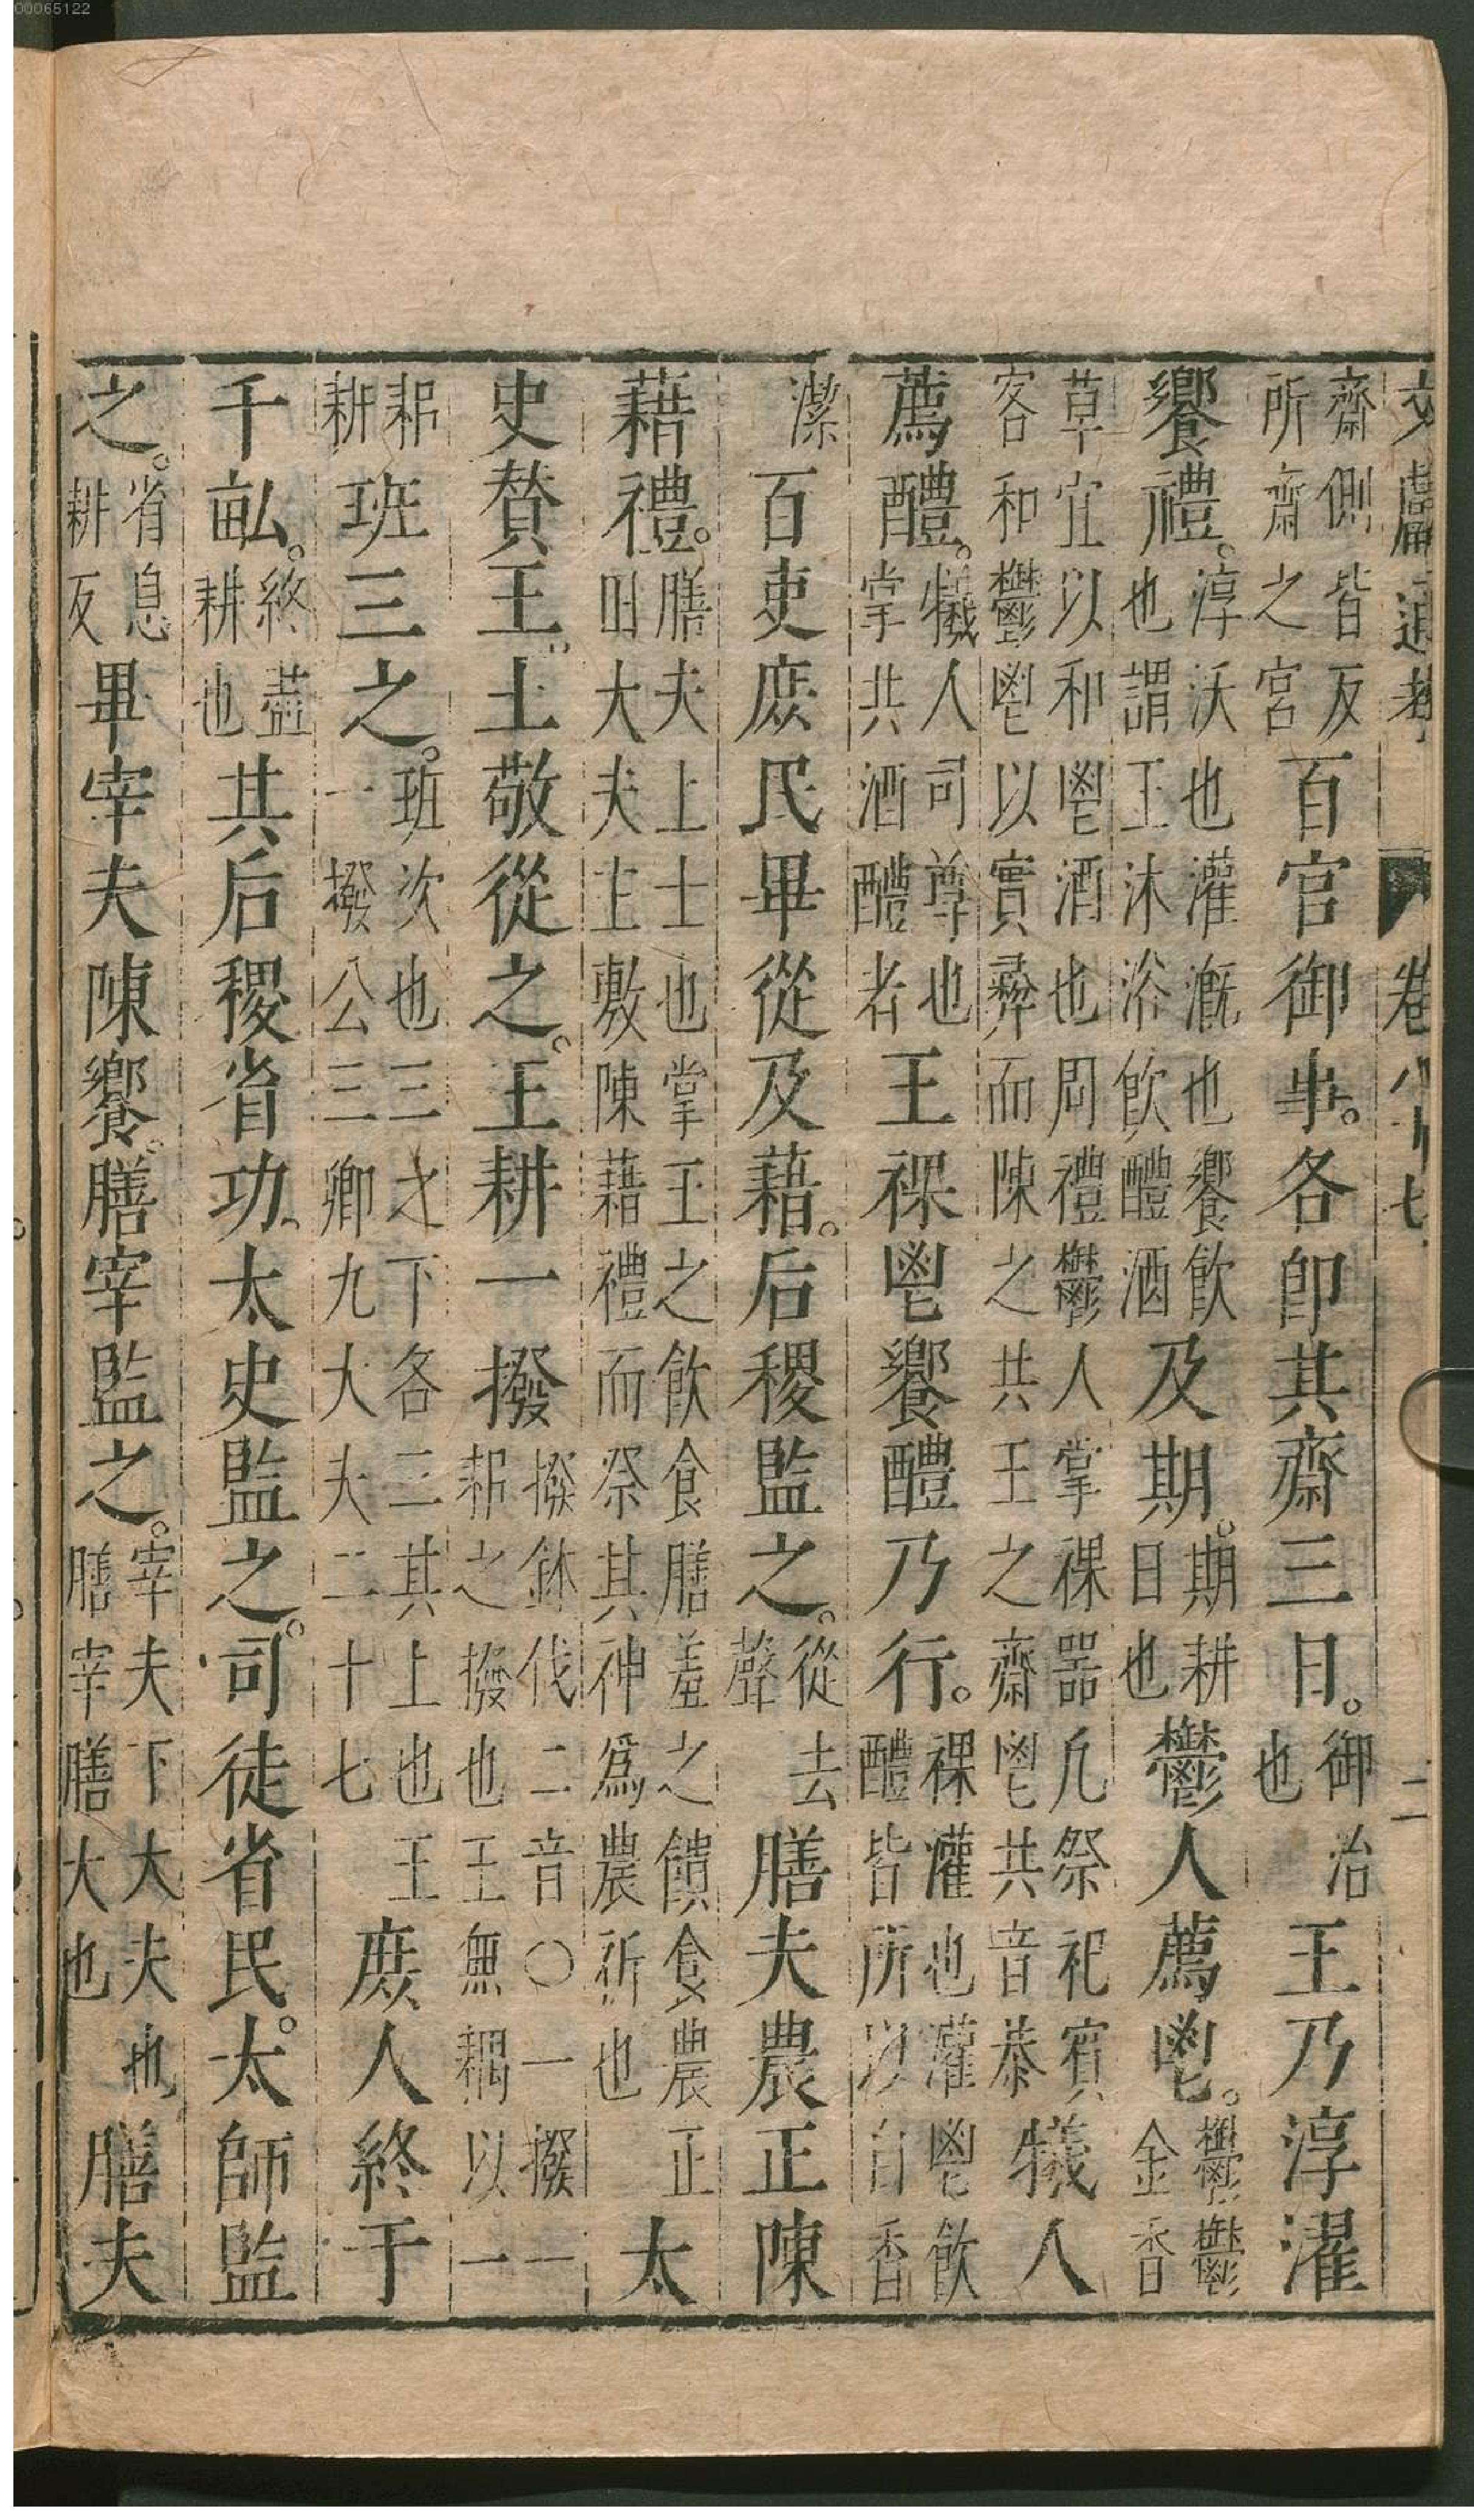 文獻通考 卷八十七 二
齋側皆反所齋之宮百官御事。各卽其齋三日。御治也王乃淳濯
饗禮。淳沃也灌漑也饗飮也謂王沐浴飮醴酒及期。期耕日也鬱人薦鬯。鬱鬱金香
草宜以和鬯酒也周禮鬱人掌祼器凡祭祀賓客和鬱鬯以實彝而陳之共王之齋鬯共音恭犧人
薦醴。犧人司尊也掌共酒醴者王祼鬯饗醴乃行。祼灌也灌鬯飮醴皆所以自香
潔百吏庶民畢從及藉。后稷監之。從去聲膳夫農正陳
藉禮。膳夫上士也掌王之飮食膳羞之饋食農正田大夫主敷陳藉禮而祭其神爲農祈也太
史贊王。王敬從之。王耕一撥撥鉢伐二音〇一撥一耜之撥也王無耦以一
耜耕班三之。班次也三之下各三其上也王一撥公三卿九大夫二十七庶人終于
千畝。終盡耕也其后稷省功。太史監之。司徒省民。太師監
之。省息耕反畢宰夫陳饗。膳宰監之。宰夫下大夫也膳宰膳大也膳夫